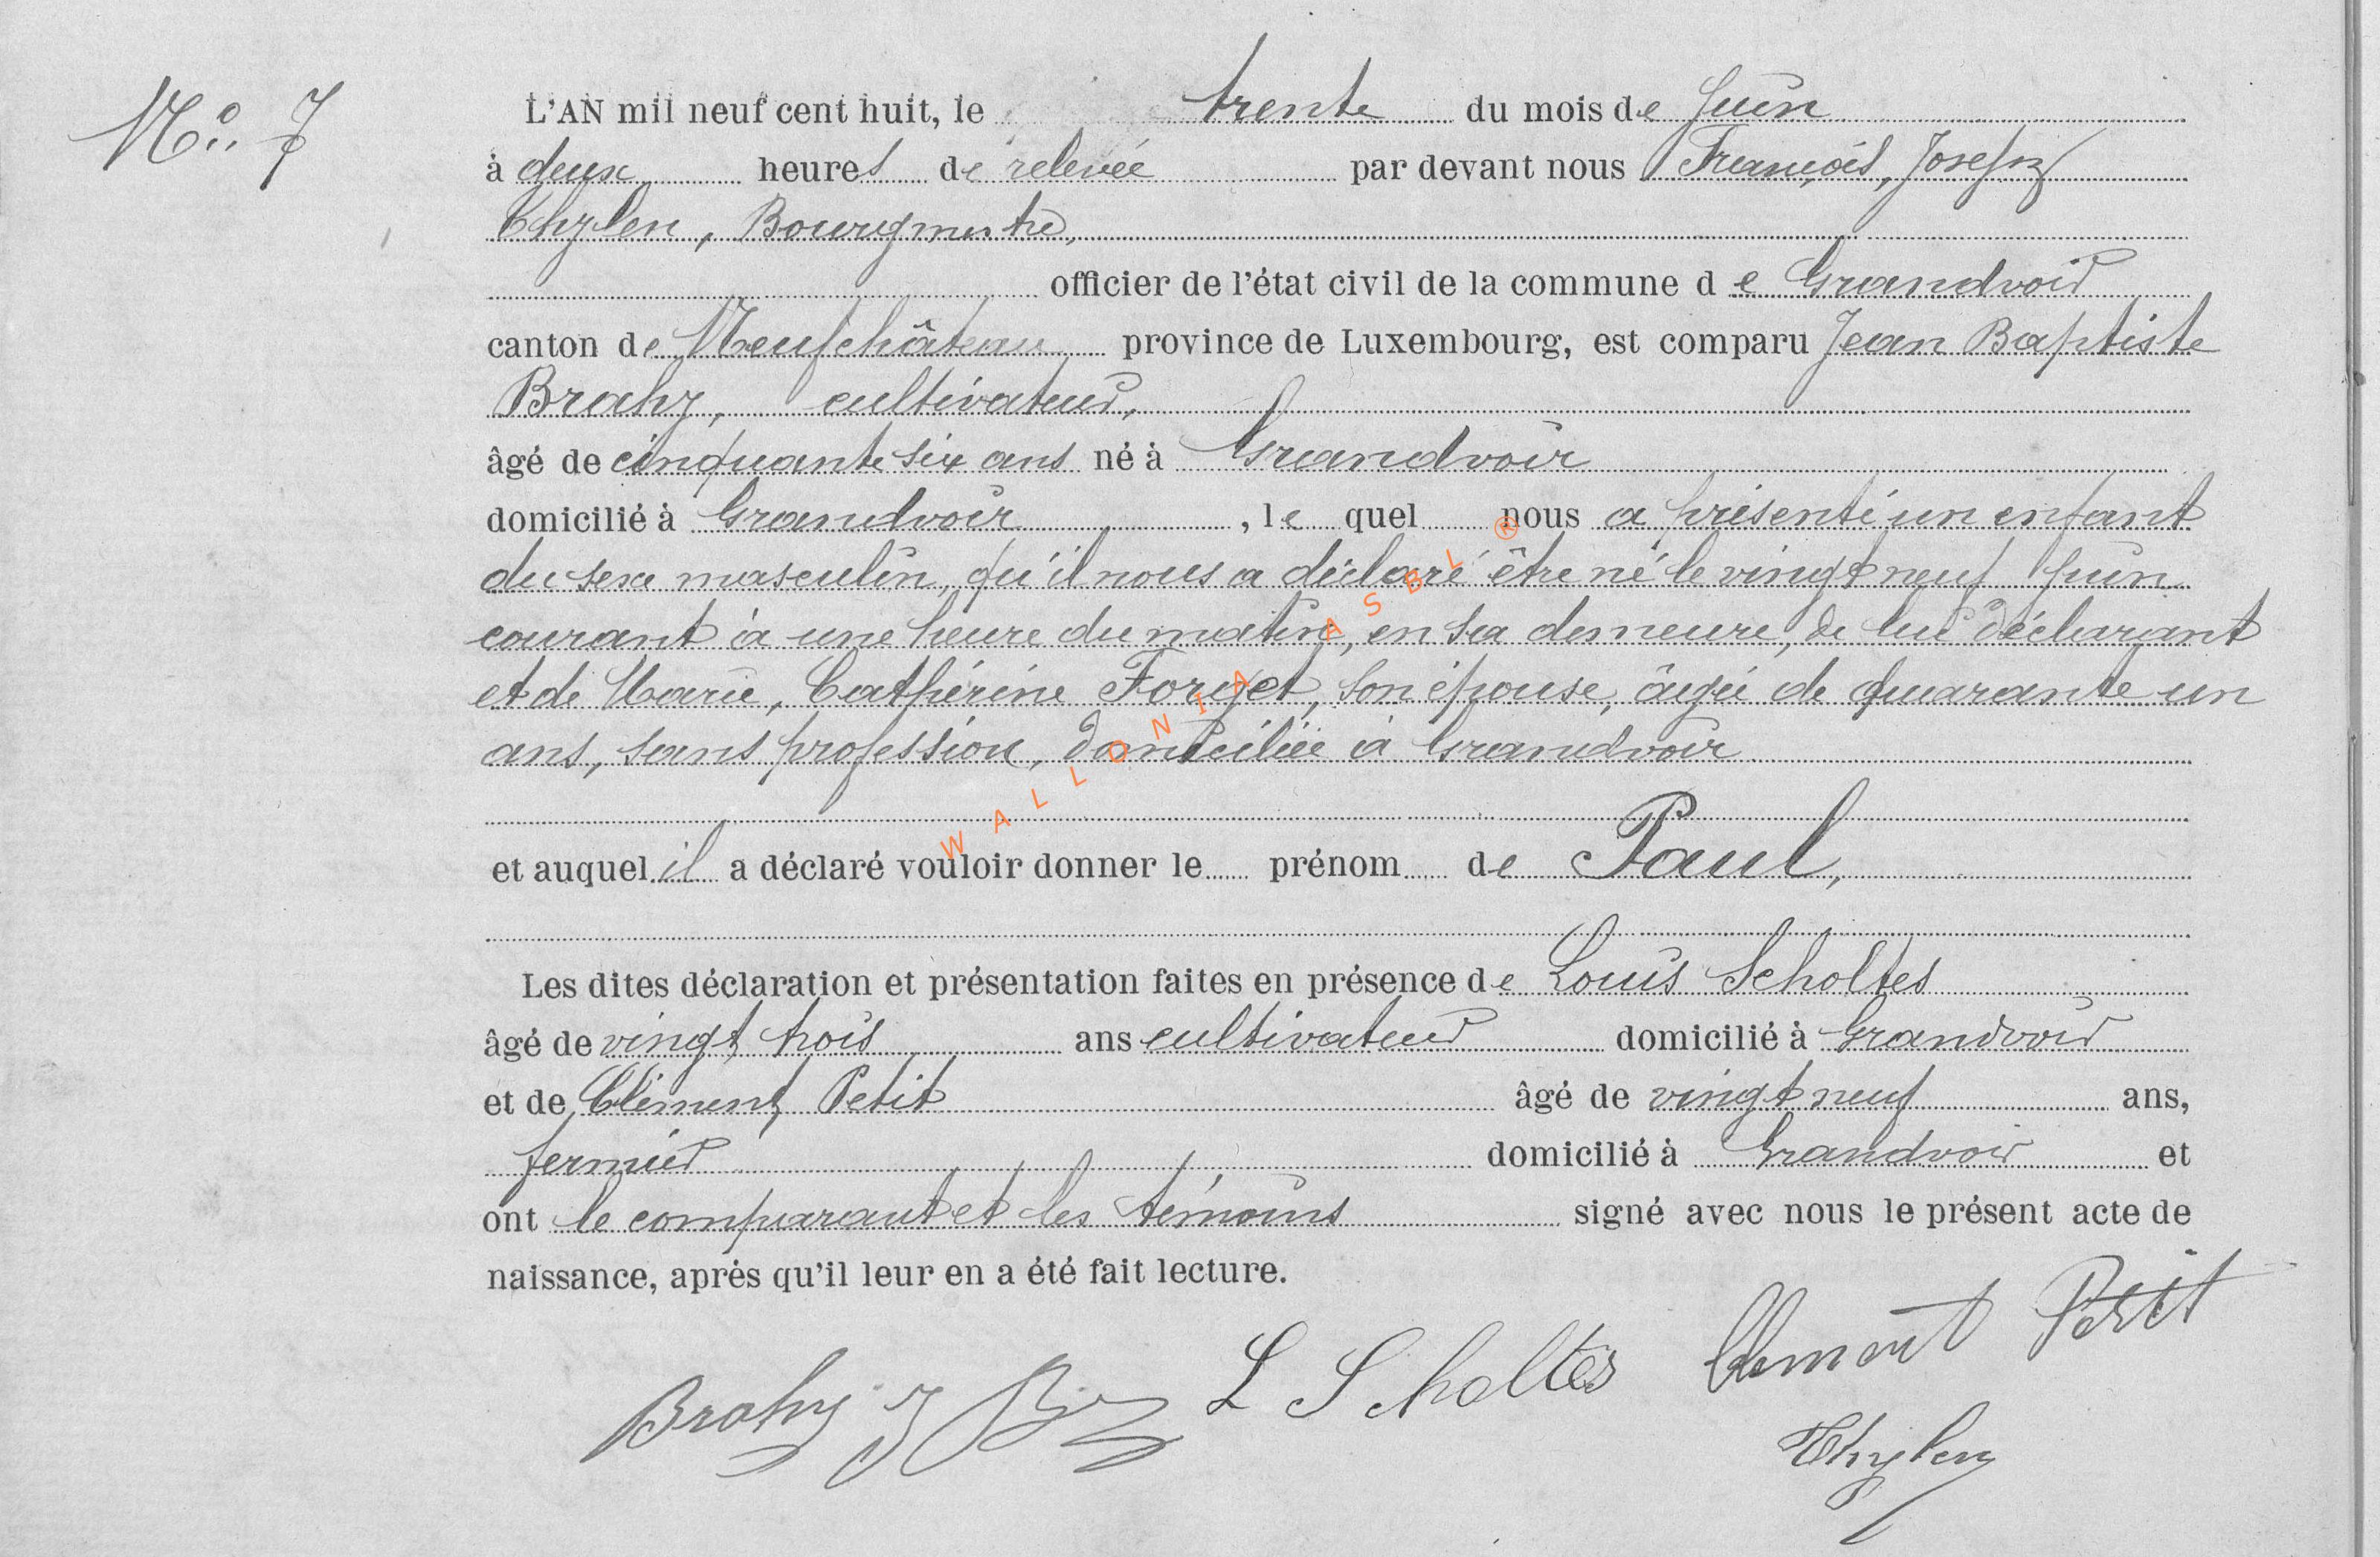 No. 7
L'AN mil neuf cent huit, le trente du mois de Juin
à deux heures de relevée par devant nous François, Joseph
Thylen, Bourgmestre,
officier de l'état civil de la commune de Grandvoir
canton de Neufchâteau province de Luxembourg, est comparu Jean Baptiste
Brahy, cultivateur,
âgé de cinquante six ans né à Grandvoir
domicilié à Grandvoir, le quel nous a présenté un enfant
du sexe masculin, qu'il nous a déclaré être né le vingt neuf Juin
courant à une heure du matin, en sa demeure, de lui déclarant
et de Marie, Catherine Forget, son épouse, âgée de quarante un
ans, sans profession, domiciliée à Grandvoir
et auquel il a déclaré vouloir donner le prénom de Paul,
Les dites déclaration et présentation faites en présence de Louis Scholtes
âgé de vingt trois ans cultivateur domicilié à Grandvoir
et de Clément Petit âgé de vingt neuf ans,
fermier domicilié à Grandvoir et
ont le comparant et les témoins signé avec nous le présent acte de
naissance, après qu'il leur en a été fait lecture.
Brahy J B L Scholtes Clement Petit
Thylen
WALLONIA ASBL ®